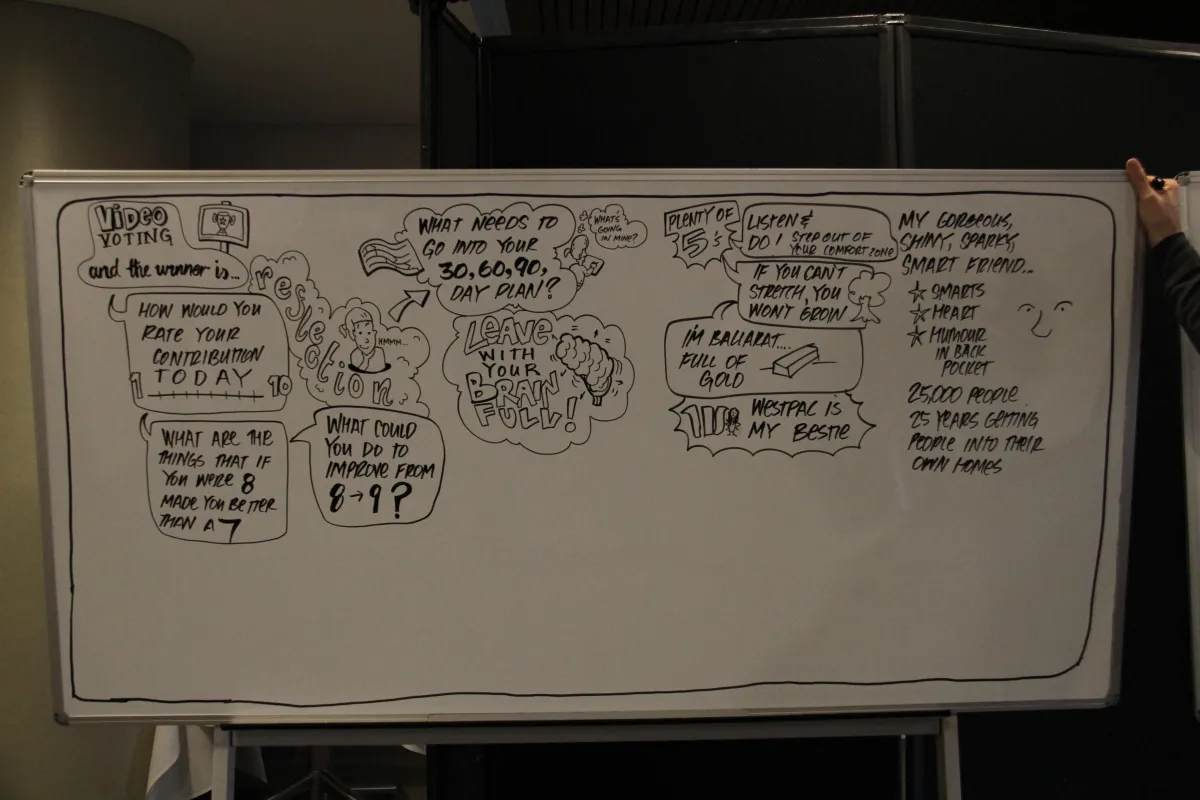 VIDEO
VOTING
and the winner is...
HOW WOULD YOU
RATE YOUR
CONTRIBUTION
TODAY
1 10
WHAT ARE THE
THINGS THAT IF
YOU WERE 8
MADE YOU BETTER
THAN A 7
reflection
HMMM...
WHAT COULD
YOU DO TO
IMPROVE FROM
8→9?
WHAT NEEDS TO
GO INTO YOUR
30, 60, 90,
DAY PLAN?
WHAT'S
GOING
IN MINE?
LEAVE
WITH
YOUR
BRAIN
FULL!
PLENTY OF
5's
LISTEN &
DO I STEP OUT OF
YOUR COMFORT ZONE
IF YOU CAN'T
STRETCH, YOU
WON'T GROW
I'M BALLARAT....
FULL OF
GOLD
WESTPAC IS
MY BESTIE
MY GORGEOUS,
SHINY, SPARKY,
SMART FRIEND...
☆ SMARTS
☆ HEART
☆ HUMOUR
IN BACK
POCKET
25,000 PEOPLE
25 YEARS GETTING
PEOPLE INTO THEIR
OWN HOMES